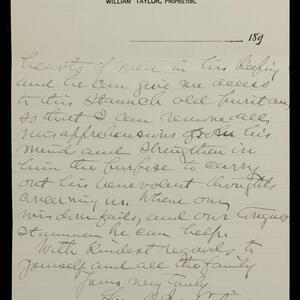 WILLIAM TAYLOR, PROPRIETOR.
189
hearts of men in his keeping
and he can give me access
to this staunch old puritan,
so that I can remove all
misapprehensions from his
mind and strengthen in
him the purpose to carry
out his benevolent thoughts
concerning us. Where our
wisdom fails, and our tongues
stammer he can help.
With kindest regards to
yourself and all the family
Yours, very truly